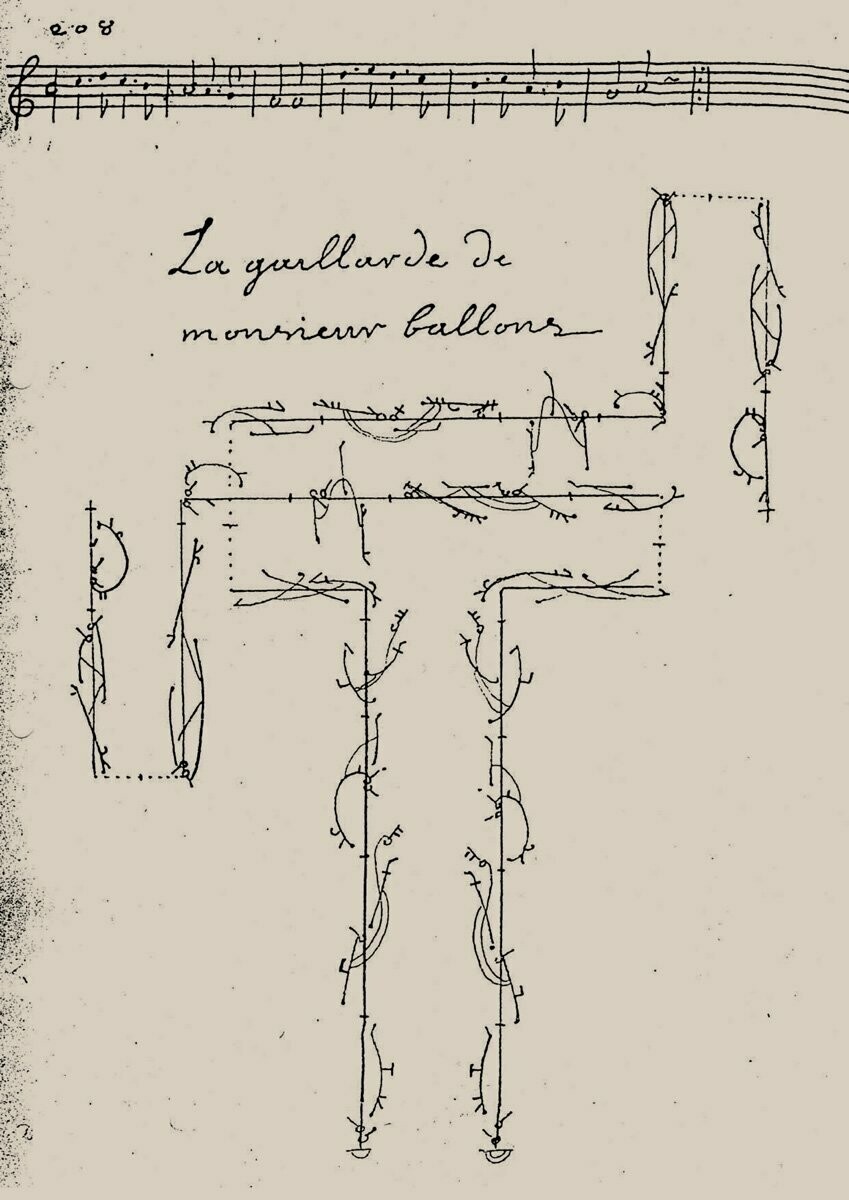 208
La gaillarde de
monsieur ballons